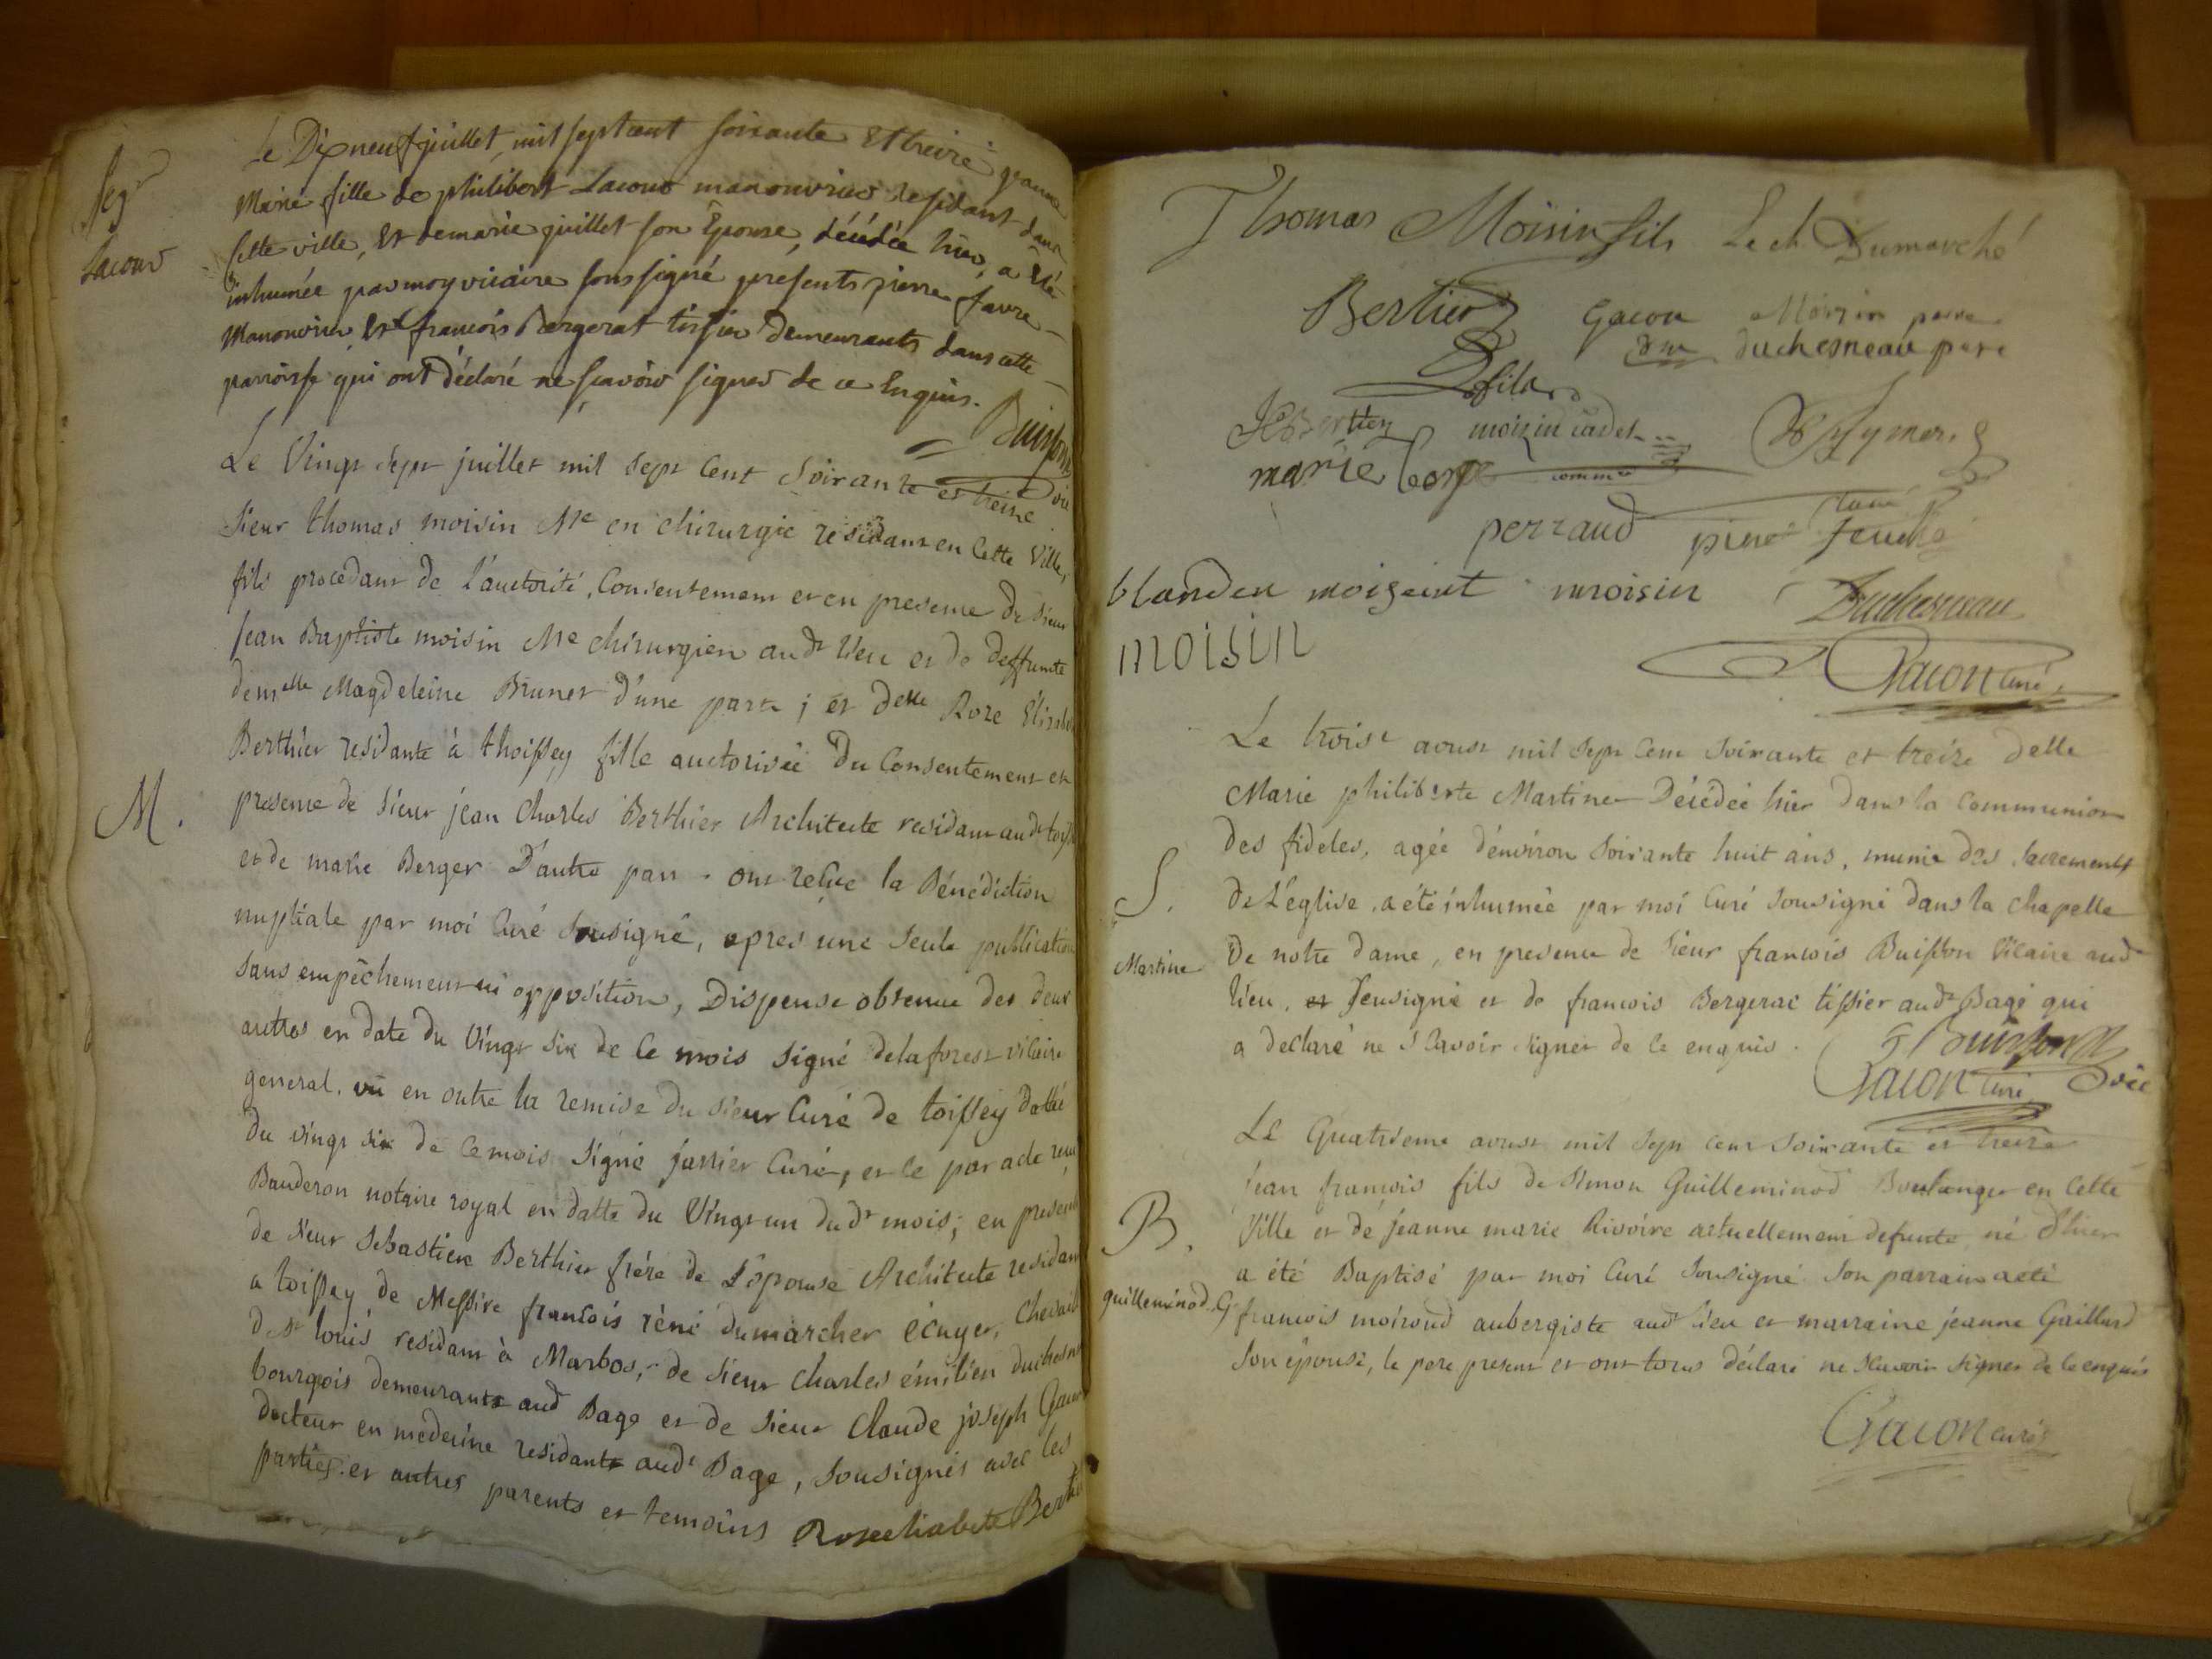 Sep.r
Lacour
Le Dix neuf juillet mil sept cent soixante Et treize jeanne
Marie fille de philibert Lacour manouvrier residant dans
cette ville, Et de marie guillet son Epouse, décédée hier, a Eté
inhumée par moy vicaire soussigné présents pierre favre
Manouvrier, Et françois Bergerat tissier Demeurants dans cette
parroisse qui ont Déclaré ne sçavoir signer de ce Enquis.
Buisson
vic
M.
Le Vingt sept juillet mil sept Cent Soixante et treize
Sieur thomas moisin Me en chirurgie residant en Cette Ville,
fils procedant de l'auctorité, Consentement et en presence de Sieur
Jean Baptiste moisin Me chirurgien audt lieu et de deffunte
demelle Magdeleine Brunet d'une part ; et delle Roze Elizab
Berthier residante à thoissey fille auctorisée Du Consentement et
presence de Sieur jean Charles Berthier Architecte residant audt toiss
et de marie Berger D'autre part . ont reçue la Bénédiction
nuptiale par moi Curé Sousigné, apres une Seule publication
sans empêchement ni opposition, Dispense obtenue des deux
autres en date du Vingt six de Ce mois Signé delaforest vicaire
general. vû en outre la remise du Sieur Curé de toissey dattée
du vingt six de Ce mois Signé Curé, et ce par acte reçu
Bauderon notaire royal en datte du Vingt un dudt mois ; en presence
de Sieur Sebastien Berthier frère de L'épouse Architecte residant
a toissey, de Messire françois réné dumarcher écuyer, Chevalier
de St louis residant à Marbos, de Sieur Charles émilien duchesne
bourgois demeurant aud Bage et de Sieur Claude joseph Gacon
docteur en medecine residant audt Bage, Sousignés avec les
parties et autres parents et temoins Rose elisabete Berthie
Thomas Moisin fils Le ch. Dumarché
Bertier Gacon Moizin pere
fils dm duchesneau pere
Bertier moizin cadet
marie
perraud
blanden moizeint moisin Duchesneau
moisin
Gacon Curé
S.
Martine
Le troise aoust mil Sept Cent Soixante et treize delle
Marie philiberte Martine Décédée hier Dans la Communion
des fideles, agée d'environ Soixante huit ans, munie des Sacrements
De L'église, a été inhumée par moi Curé Sousigné Dans la Chapelle
De notre dame, en presence de Sieur francois Buisson Vicaire audt
lieu, Sousigné et de francois Bergerat tissier audt Bagé qui
a declaré ne Sçavoir signer de Ce enquis.
Buisson
Gacon Curé vic
B.
guilleminod
Le Quatrieme aoust mil Sept cent Soixante et treize
jean françois fils de Simon Guilleminod Boulanger en Cette
Ville et de jeanne marie Rivoire actuellement defunte né d'hier
a été Baptisé par moi Curé Sousigné Son parrain a eté
francois moiroud aubergiste audt lieu et marraine jeanne Gaillard
Son épouse, le pere present et ont tous déclaré ne Sçavoir signer de Ce enquis
Gacon curé